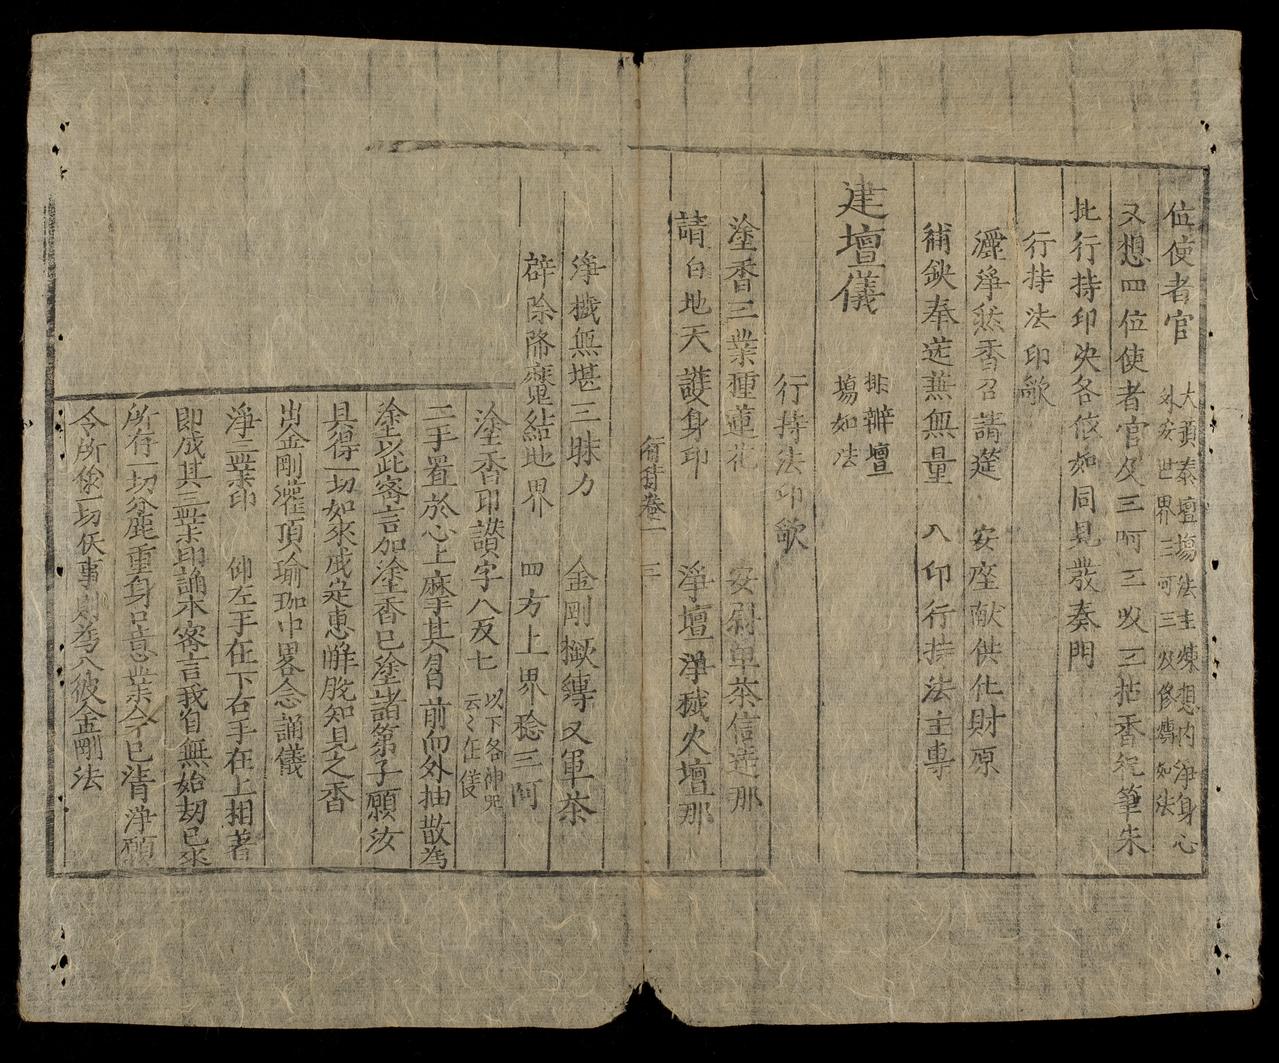 位使者官 大頂奏壇場法主煉想内淨身心
外安世界三呵三㕮修齋如法
又想四位使者官及三呵三㕮三拈香完筆朱
批行持印决各依如同見發奏門
行持法印歌
灑淨然香召請莚 安座献供化財原
補鈌奉送無無量 入印行持法主專
建壇儀 排辦壇
塲如法
行持法印歌
塗香三業種蓮花 安慰卑茶信送那
請白地天護身印 淨壇淨穢火壇那
行移卷二 三
淨穢無堪三昧力 金剛撅縛又軍茶
辟除降魔結地界 四方上界稔三阿
塗香印讃字八反七 以下各神咒
云々在後
二手置於心上摩手其自前向外抽散為
塗以此密言加塗香已塗諸第子願汝
具得一切如來戒定惠解脫知見之香
出金剛灌頂瑜珈中畧念誦儀
淨三業印 仰左手在下右手在上相著
即成其三業印誦本密言我自無始劫已來
所行一切麁重身口意業今已清淨願
令所修一切仸事則為入彼金剛法